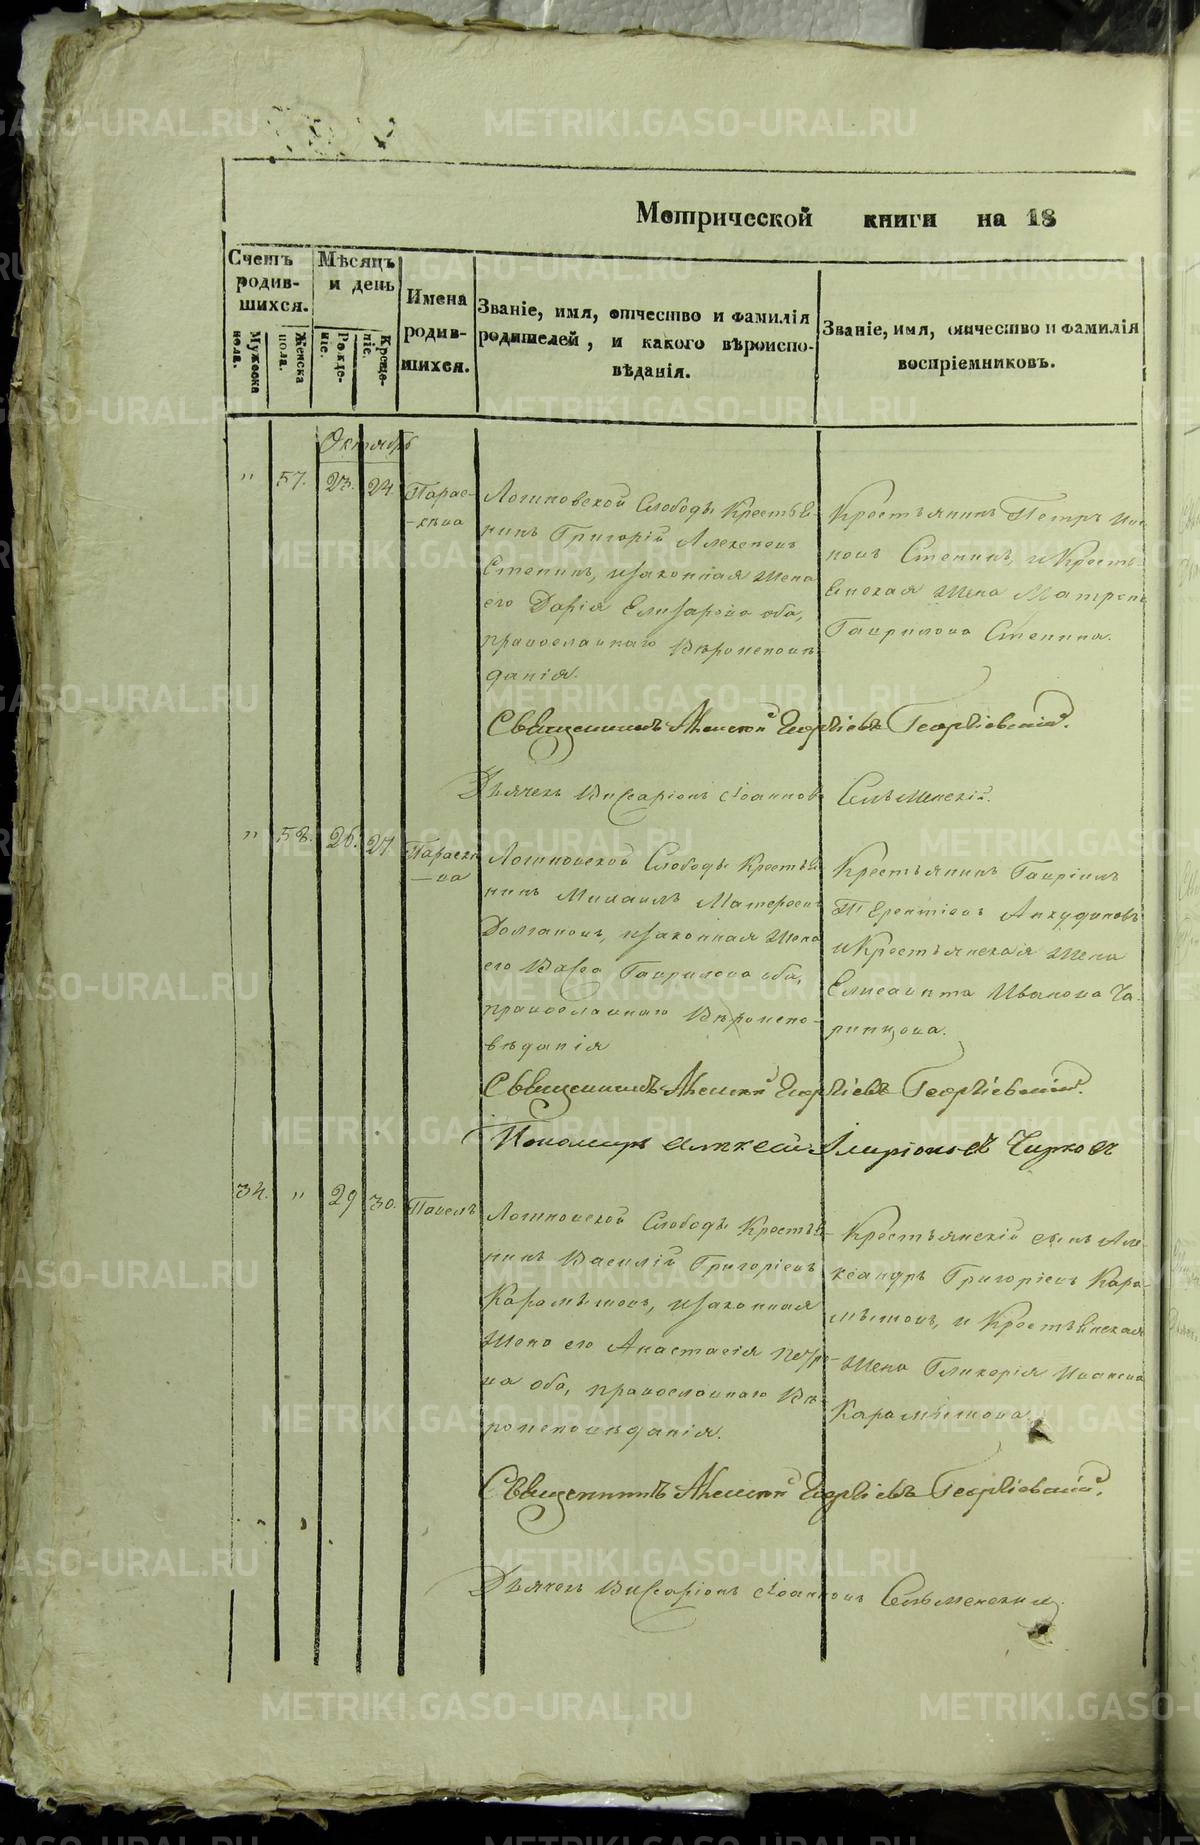 Метрической книги на 18
Счетъ родив-шихся.
Мужеска пола.
Женска пола.
Мѣсяцъ и день
Рожде-ніе.
Креще-ніе.
Имена родив-шихся.
Званіе, имя, отчество и фамилія
родителей, и какого вѣроиспо-
вѣданія.
Званіе, имя, отчество и фамилія
воспріемниковъ.
Октябрь
" 57. 23. 24. Парас-
-кева
Логиновской Слободы Крестья-
нинъ Григорій Алексеевъ
Степинъ, и законная жена
его Дарія Елизарова оба,
православнаго Вѣроисповѣ
данія.
Крестьянинъ Петръ
Степинъ, и Кресть-
янская жена Матрона
Гаврилова Степина.
Священникъ Алексей Георгіевъ Георгіевскій.
Дьячекъ Висаріонъ Іоанновъ Селѣменскій.
" 58. 26. 27. Параске
-ва
Логиновской Слободы Крестья
нинъ Михаилъ Матвеевъ
Долгановъ, и законная жена
его Васса Гаврилова оба,
православнаго Вѣроиспо-
вѣданія
Крестьянинъ Гавріилъ
Терентіевъ Анкудиновъ
и Крестьянская жена
Елисавета Иванова Ца-
рипцова.
Священникъ Алексей Георгіевъ Георгіевскій.
Пономарь Алексей Иларіоновъ Чирковъ
34. " 29 30. Павелъ
Логиновской Слободы Крестья-
нинъ Василій Григоріевъ
Карамышевъ, и законная
жена его Анастасія
ва оба, православнаго Вѣ-
роисповѣданія.
Крестьянскій сынъ Але-
ксандръ Григоріевъ Кара-
мышевъ, и Крестьянская
жена Гликерія Иванова
Карамышева
Священникъ Алексей Георгіевъ Георгіевскій.
Дьячекъ Висаріонъ Іоанновъ Селѣменскій.
METRIKI.GASO-URAL.RU